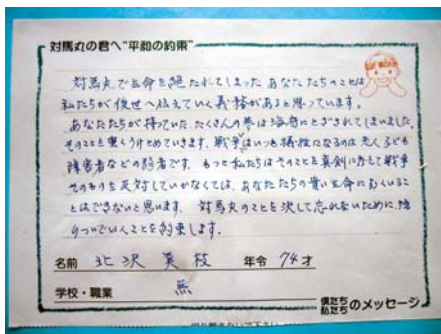 対馬丸の君へ"平和の約束"
対馬丸で生命を絶たれてしまったあなたたちのことは
私たちが後世へ伝えていく義務があると思っています。
あなたたちが持っていた、たくさんの夢は海底にとざされてしまいました。
そのことを重くうけとめています。戦争はいつも犠牲になるのは老人子ども
障害者などの弱者です。もっと私たちはそのことを真剣に考えて戦争
そのものを反対していかなくては、あなたたちの貴い生命にむくいるこ
とはできないと思います。対馬丸のことを決して忘れないために、語
りついでいくことを約束します。
名前 北沢 美枝 年令 74才
学校・職業 無
僕たち私たちのメッセージ